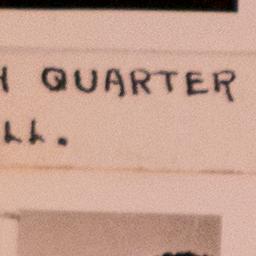 QUARTER
LL.